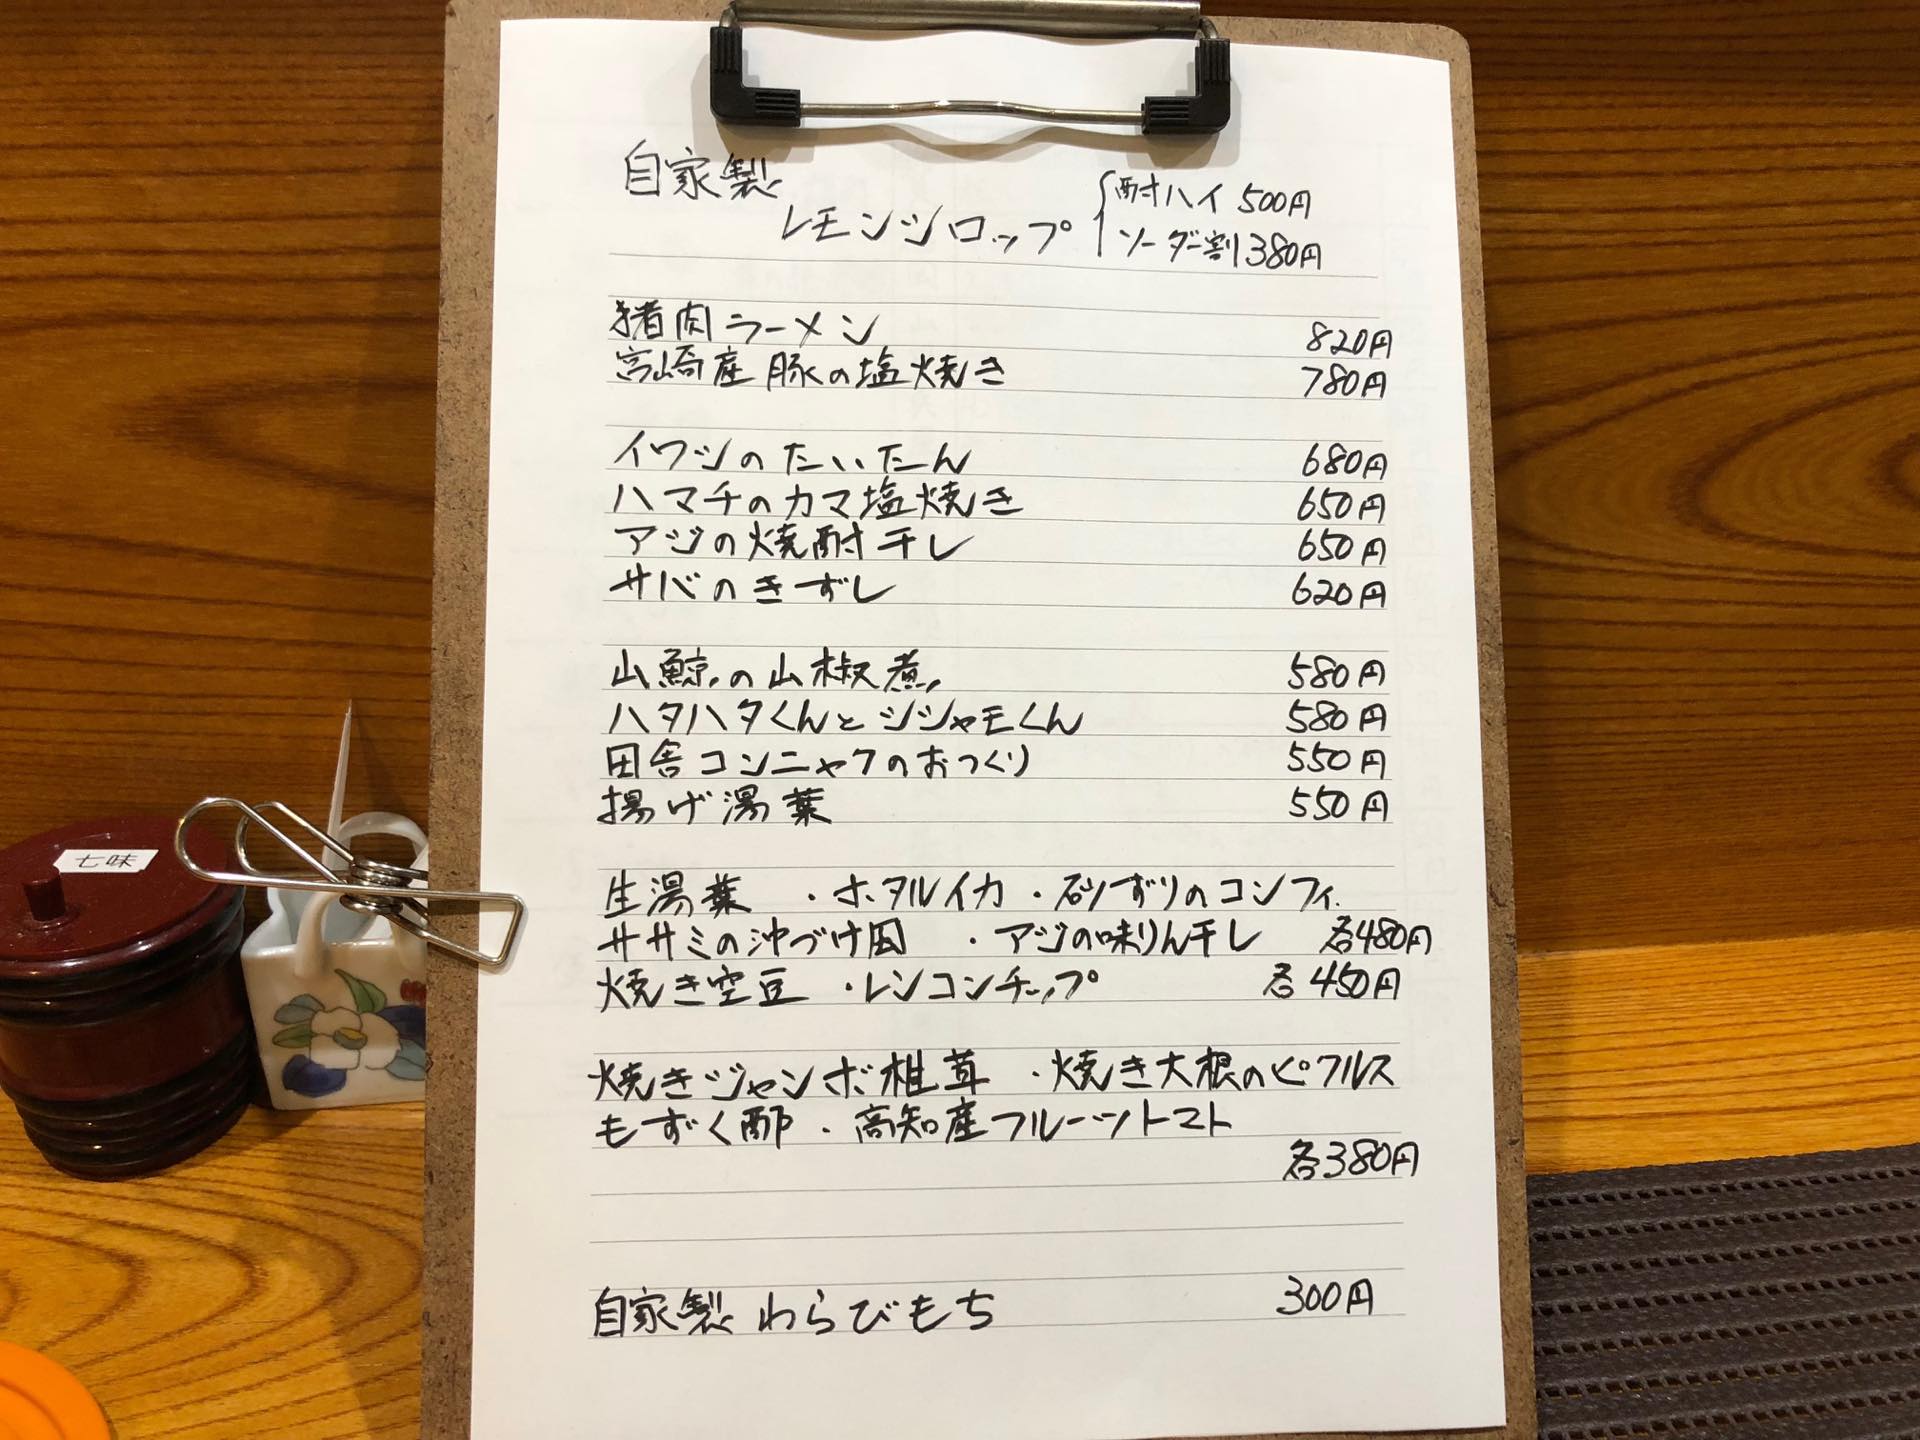 自家製
レモンシロップ
酎ハイ 500円
ソーダー割 380円
猪肉ラーメン 820円
宮崎産豚の塩焼き 780円
イワシのたいたん 680円
ハマチのカマ塩焼き 650円
アジの焼酎干し 650円
サバのきずし 620円
山鯨の山椒煮 580円
ハタハタくんとシシャモくん 580円
田舎コンニャクのおつくり 550円
揚げ湯葉 550円
生湯葉 ・ホタルイカ・砂ずりのコンフィ
ササミの沖づけ風 ・アジの味りん干し 各480円
焼き空豆 ・レンコンチップ 各450円
焼きジャンボ椎茸 ・焼き大根のピクルス
もずく酢 ・高知産フルーツトマト
各380円
自家製わらびもち 300円
七味